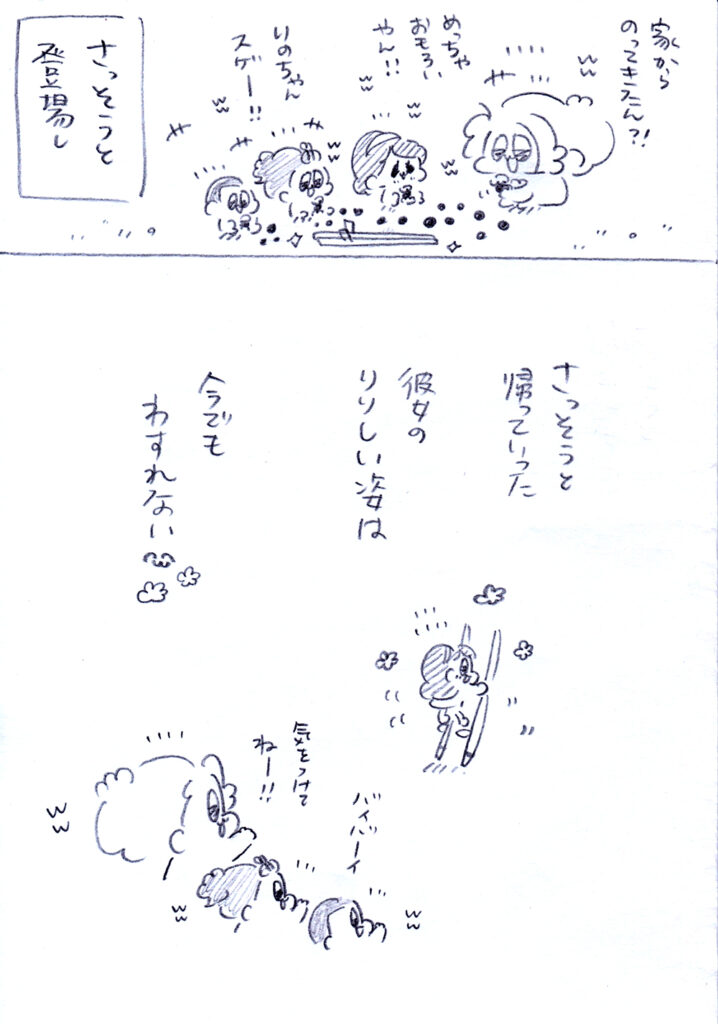 家から
のってきたん?!
めっちゃ
おもろい
やん!!
いのちゃん
スゲー!!
さっそうと
登場し
さっそうと
帰っていった
彼女の
りりしい姿は
今でも
わすれない
気をつけて
ねー!!
バイバーイ